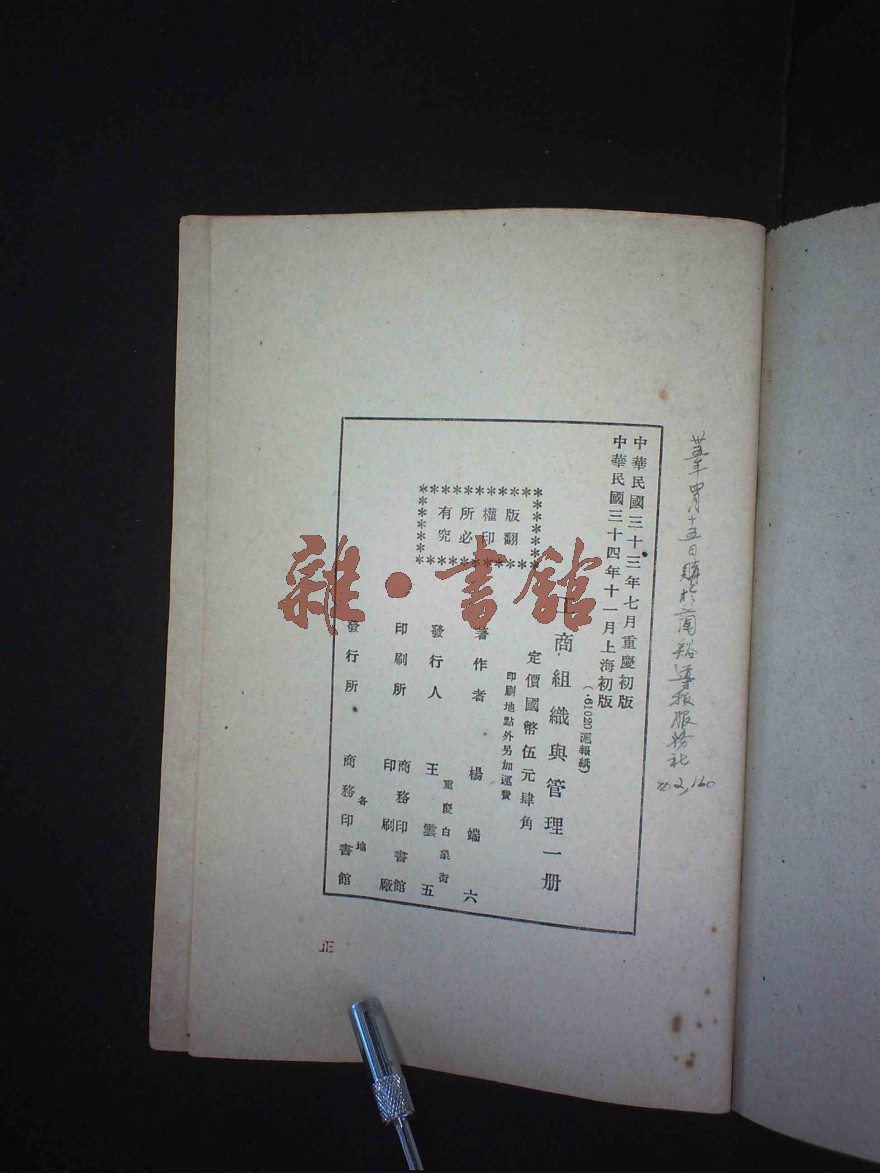 中華民國三十三年七月重慶初版
中華民國三十四年十一月上海初版
(·61020 滬報紙)
工商組織與管理一册
定價國幣伍元肆角
印刷地點外另加運費
版權所有
翻印必究
著作者 楊端六
重慶白象街
發行人 王雲五
印刷所 商務印書館印刷廠
各地
發行所 商務印書館
正
雜·書館
十五日購於蘭谿導報服務社